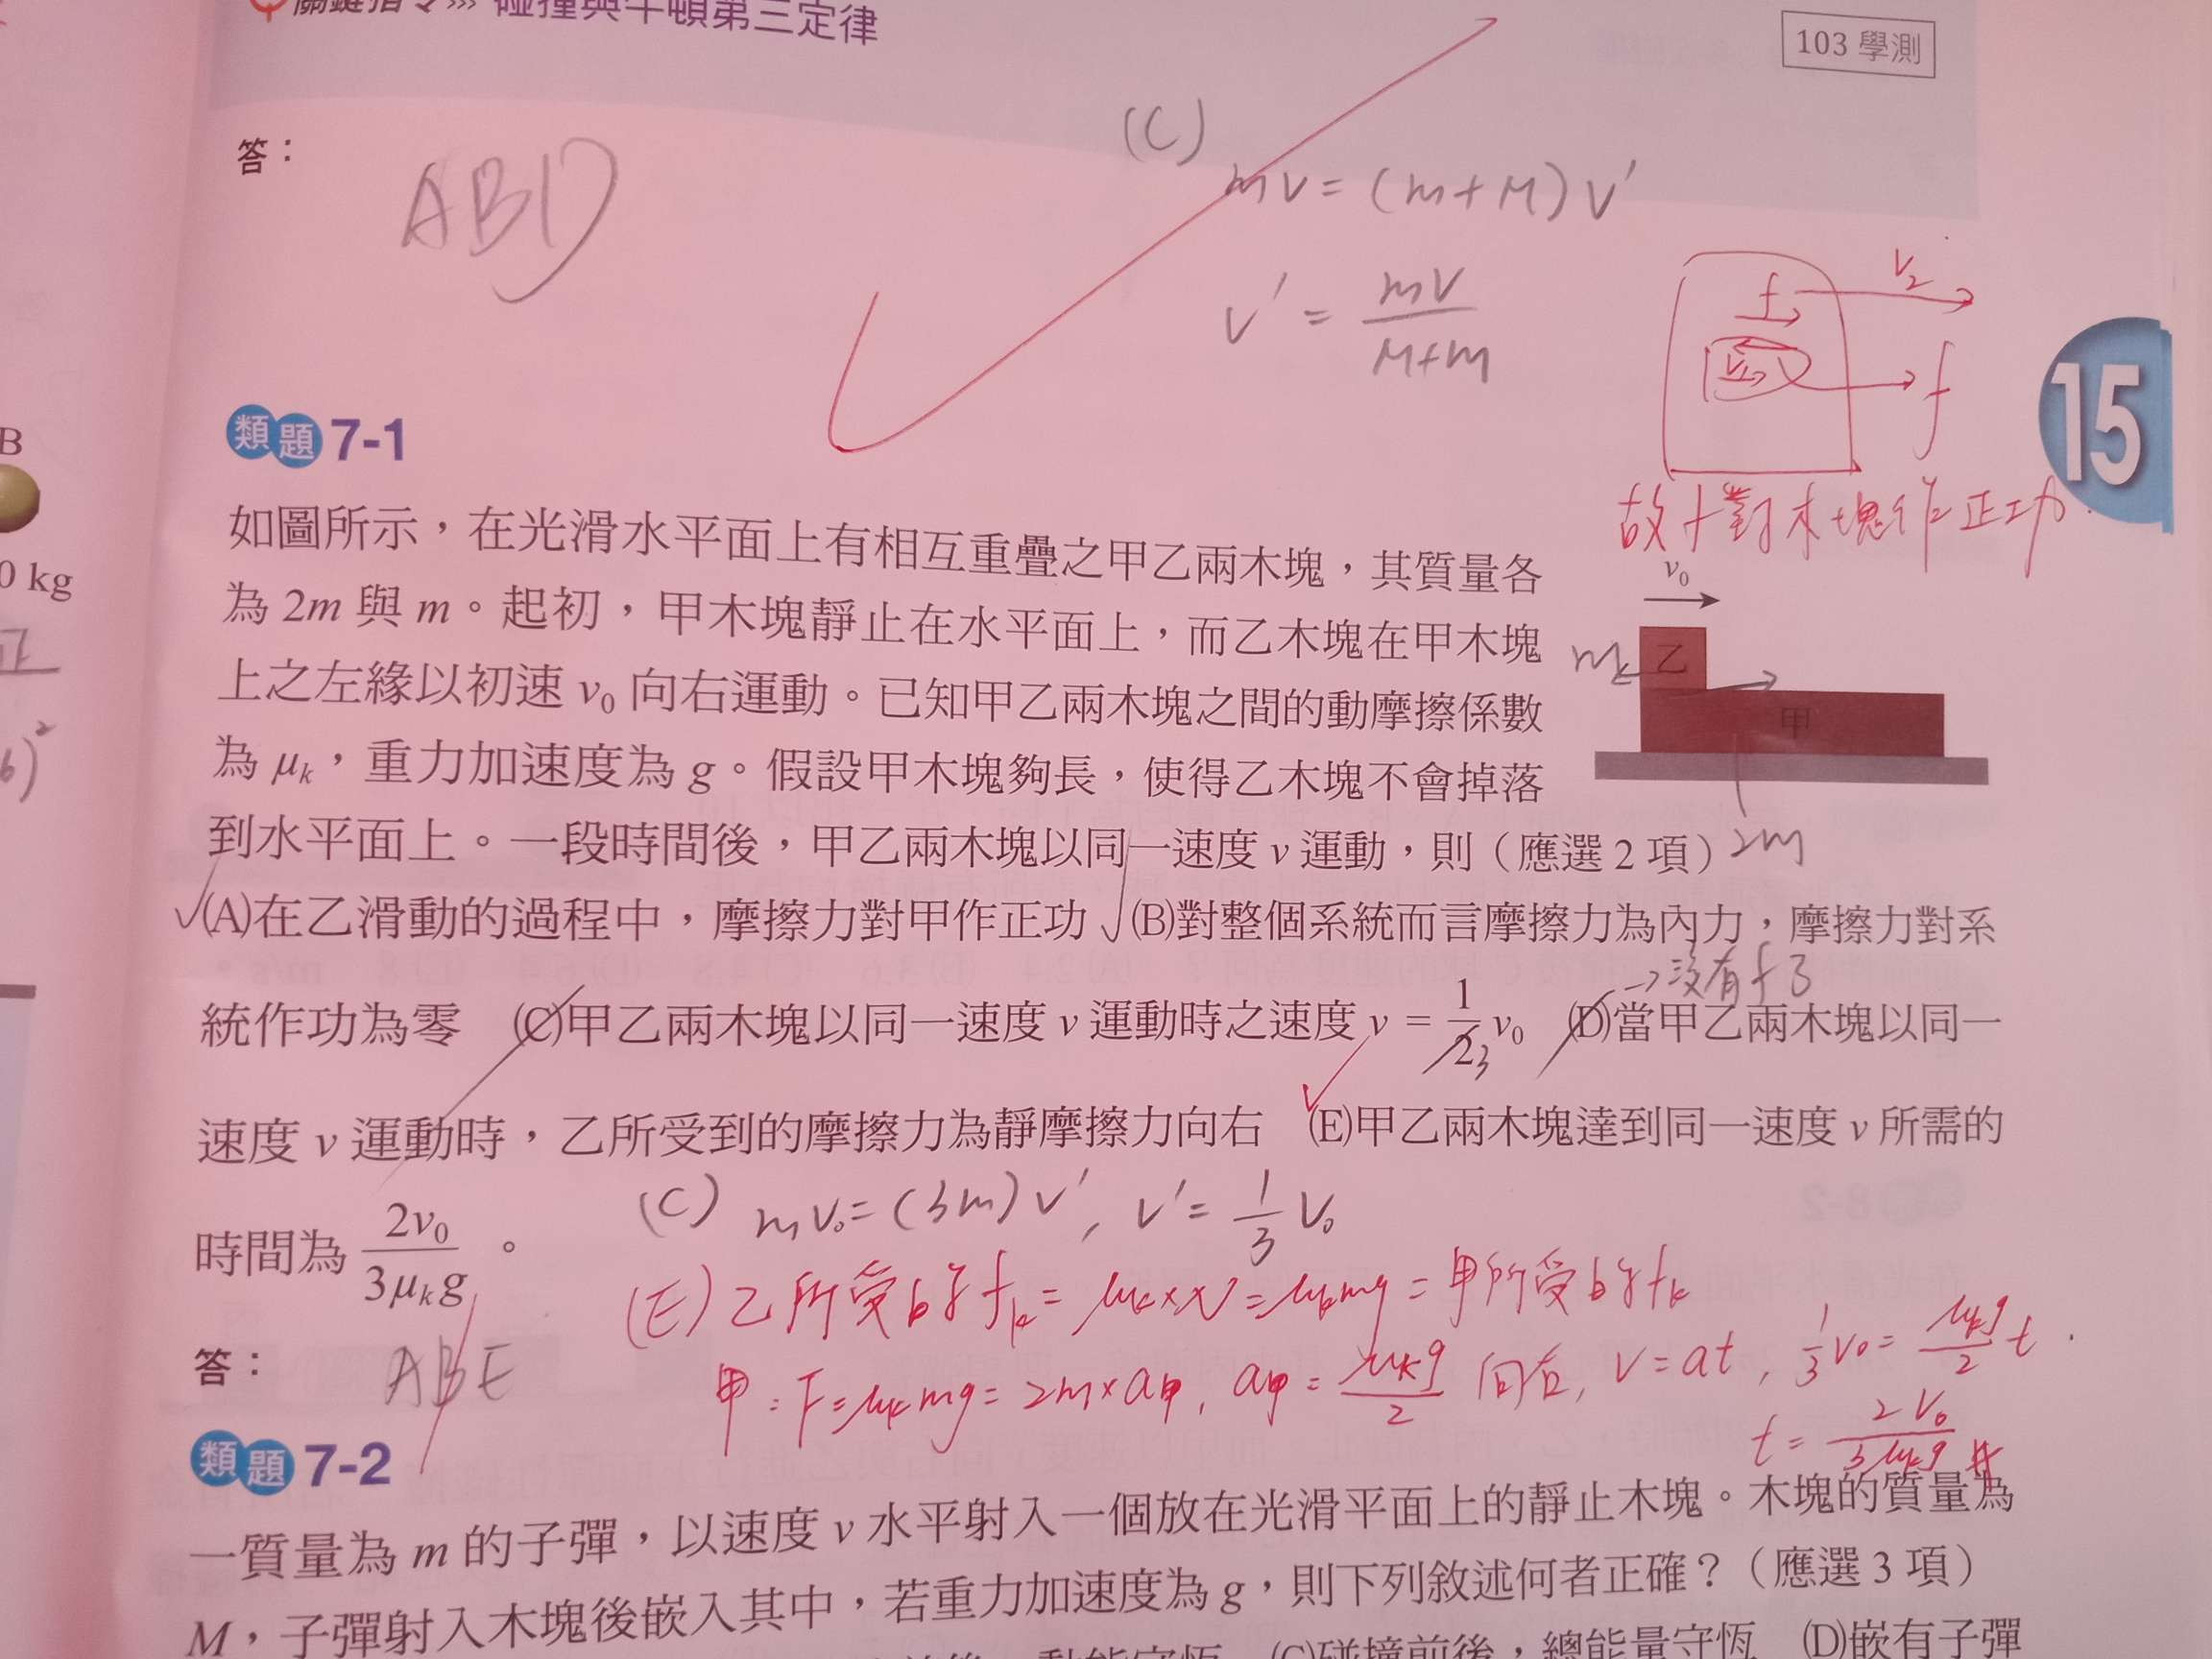 關鍵指令››› 碰撞與牛頓第三定律
103 學測
答：
ABD
(C)
mv = (m+M) v'
v' = mv/M+m
f
V₂
f
故f對木塊作正功
15
B
0 kg
正
6)²
類題 7-1
v₀
如圖所示，在光滑水平面上有相互重疊之甲乙兩木塊，其質量各
為 2m 與 m。起初，甲木塊靜止在水平面上，而乙木塊在甲木塊
上之左緣以初速 v₀ 向右運動。已知甲乙兩木塊之間的動摩擦係數
為 μₖ，重力加速度為 g。假設甲木塊夠長，使得乙木塊不會掉落
到水平面上。一段時間後，甲乙兩木塊以同一速度 v 運動，則（應選 2 項）
m
乙
甲
2m
(A)在乙滑動的過程中，摩擦力對甲作正功 (B)對整個系統而言摩擦力為內力，摩擦力對系
→沒有f了
統作功為零 (C)甲乙兩木塊以同一速度 v 運動時之速度 v = 1/2 v₀ (D)當甲乙兩木塊以同一
3
速度 v 運動時，乙所受到的摩擦力為靜摩擦力向右 (E)甲乙兩木塊達到同一速度 v 所需的
時間為 2v₀/3μₖg 。
(C) mv₀ = (3m) v' , v' = 1/3 V₀
(E) 乙所受的fₖ = μₖ×N = μₖmg = 甲所受的fₖ
甲：F = μₖmg = 2m×a甲, a甲 = μₖg/2 向右, v = at , 1/3 v₀ = μₖg/2 t
t = 2V₀/3μₖg #
答：
ABE
類題 7-2
一質量為 m 的子彈，以速度 v 水平射入一個放在光滑平面上的靜止木塊。木塊的質量為
M，子彈射入木塊後嵌入其中，若重力加速度為 g，則下列敘述何者正確？（應選 3 項）
動能守恆 (C)碰撞前後，總能量守恆 (D)嵌有子彈